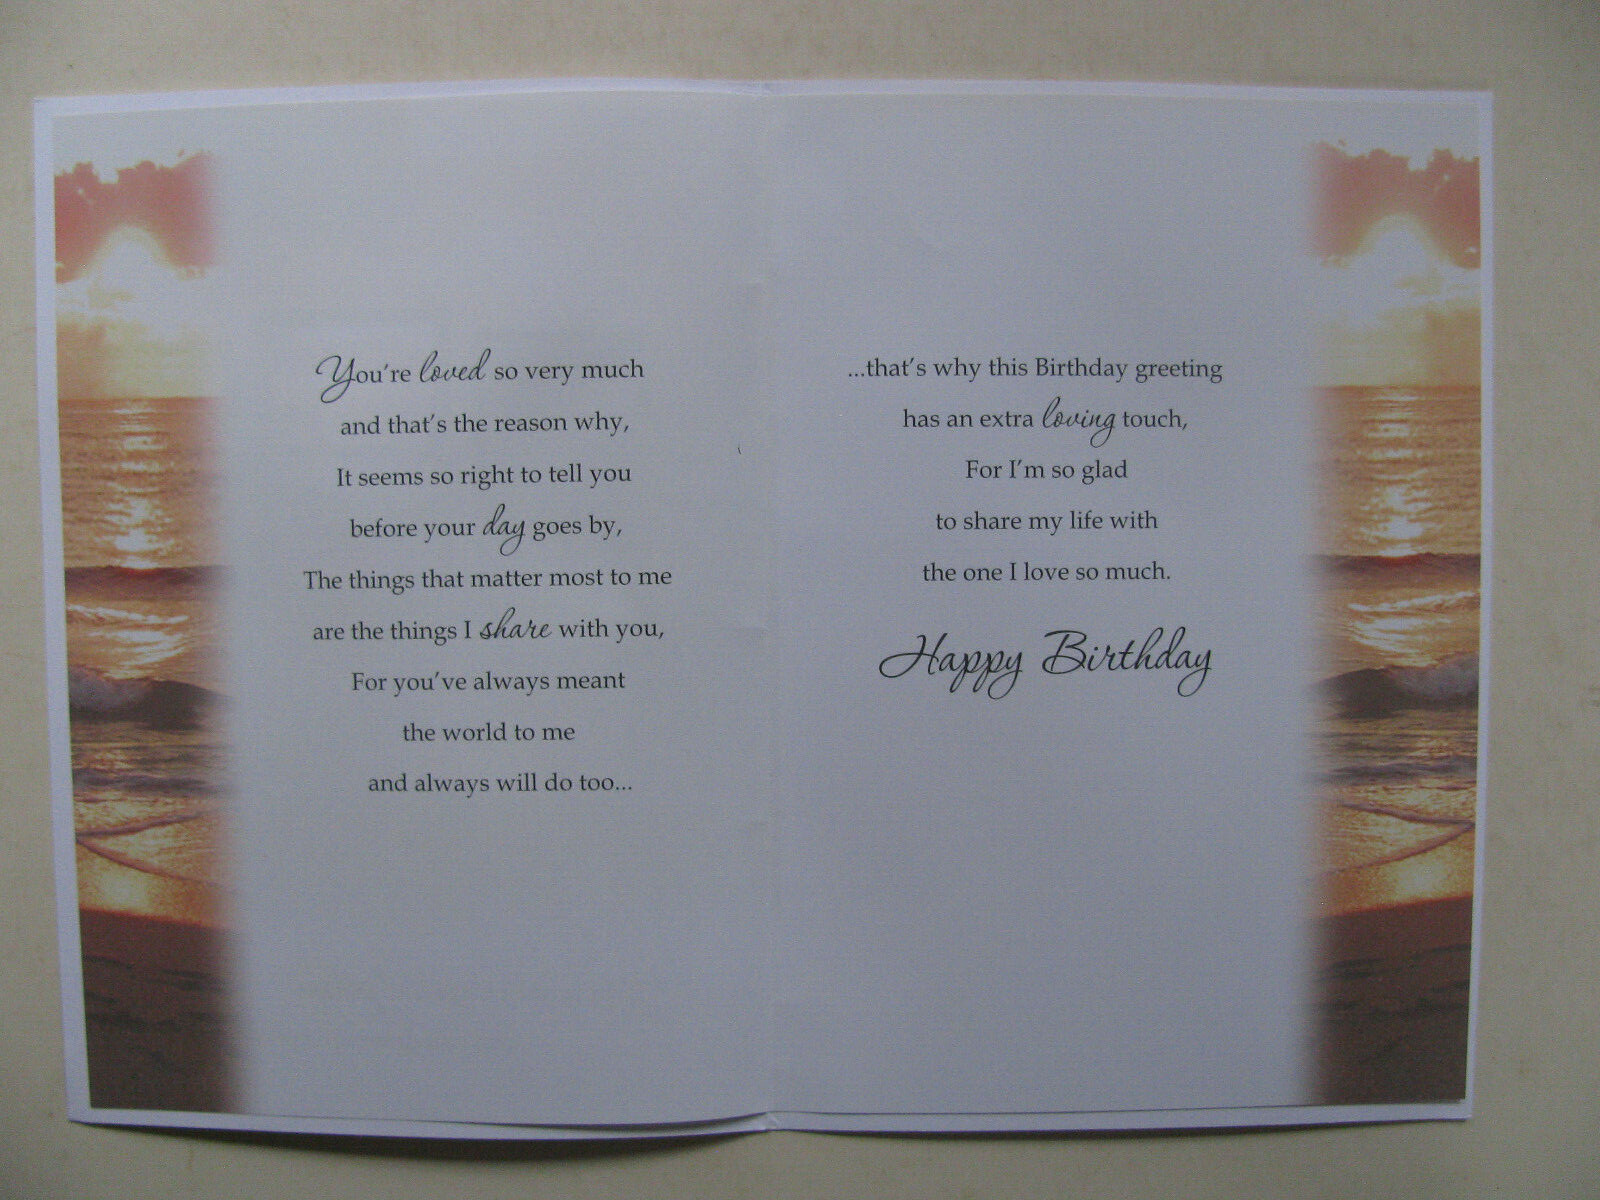 You're loved so very much
and that's the reason why,
It seems so right to tell you
before your day goes by,
The things that matter most to me
are the things I share with you,
For you've always meant
the world to me
and always will do too...
...that's why this Birthday greeting
has an extra loving touch,
For I'm so glad
to share my life with
the one I love so much.
Happy Birthday